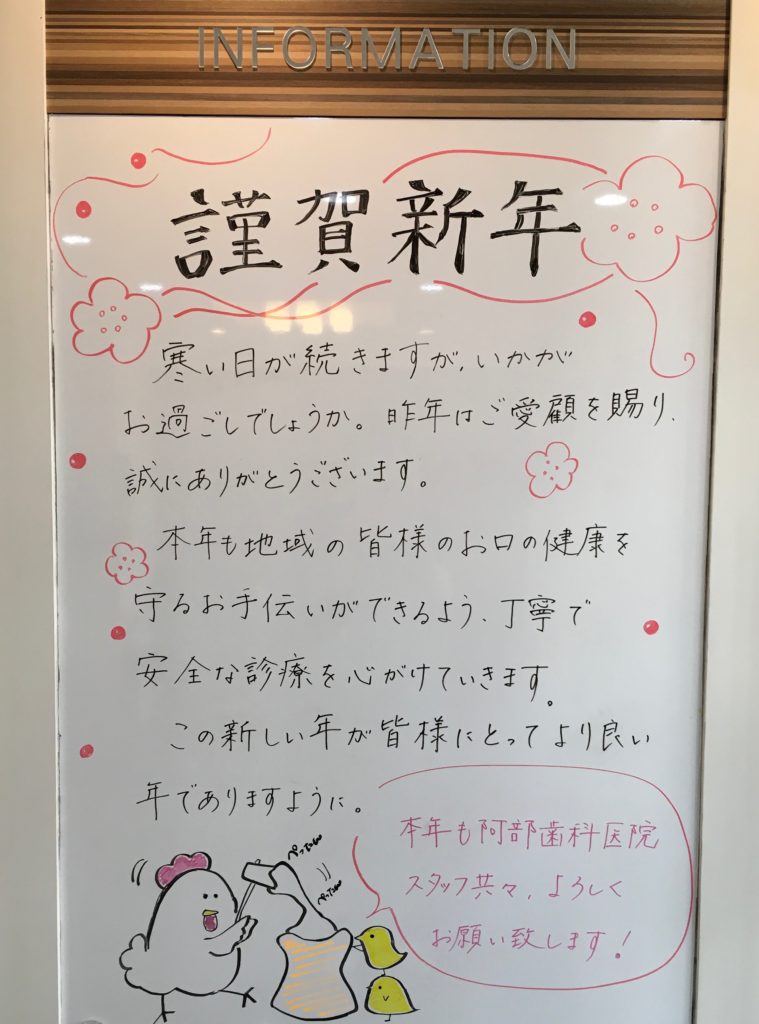 INFORMATION
謹賀新年
寒い日が続きますが、いかが
お過ごしでしょうか。昨年はご愛顧を賜り、
誠にありがとうございます。
本年も地域の皆様のお口の健康を
守るお手伝いができるよう、丁寧で
安全な診療を心がけていきます。
この新しい年が皆様にとってより良い
年でありますように。
ぺったん
ぺったん
本年も阿部歯科医院
スタッフ共々、よろしく
お願い致します!